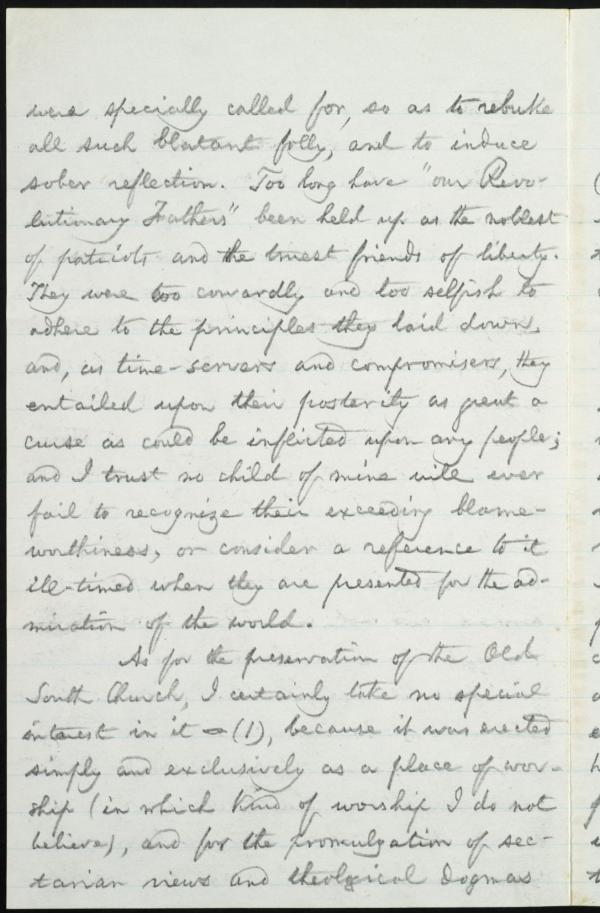 were specially called for, so as to rebuke
all such blatant folly, and to induce
sober reflection. Too long have "our Revo-
lutionary Fathers" been held up as the noblest
of patriots and the truest friends of liberty.
They were too cowardly and too selfish to
adhere to the principles they laid down,
and, as time-servers and compromisers, they
entailed upon their posterity as great a
curse as could be inflicted upon any people;
and I trust no child of mine will ever
fail to recognize their exceeding blame-
worthiness, or consider a reference to it
ill-timed when they are presented for the ad-
miration of the world.
As for the preservation of the Old
South Church, I certainly take no special
interest in it – (1), because it was erected
simply and exclusively as a place of wor-
ship (in which kind of worship I do not
believe), and for the promulgation of sec-
tarian views and theological dogmas